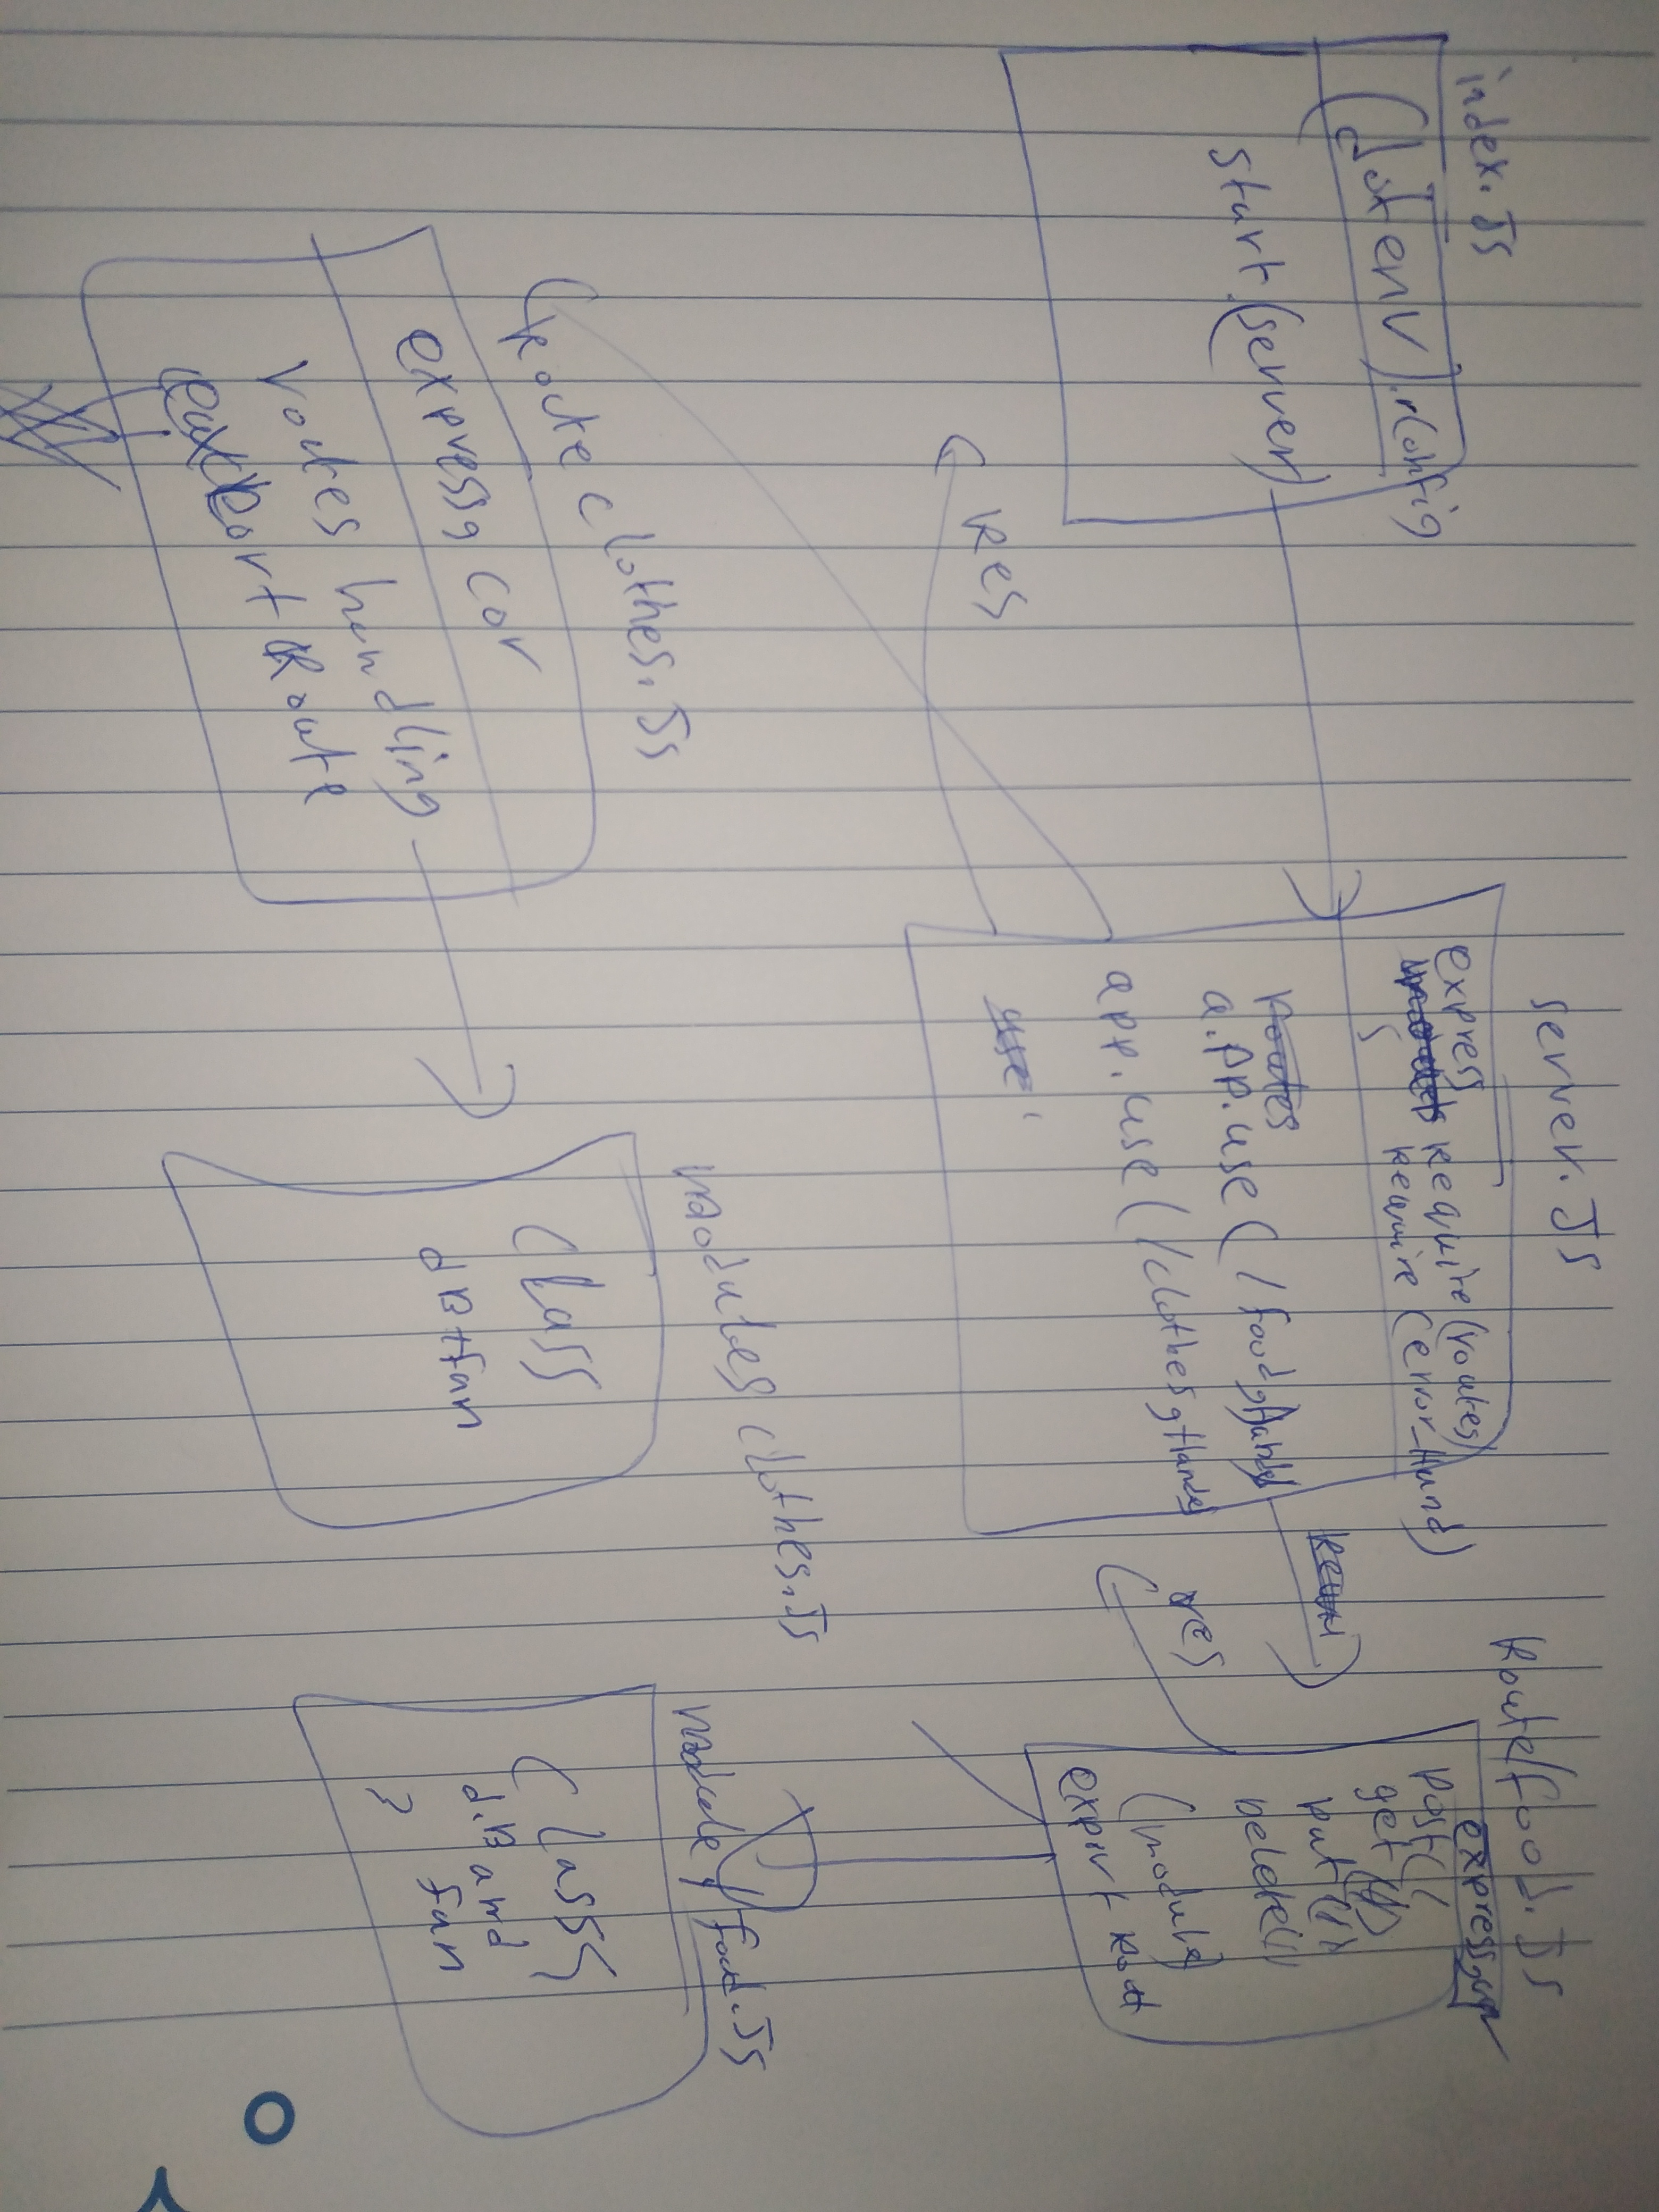 index.Js
(dotenv).config
start(server)
res
server.Js
express require (routes)
require (error_Hand)
Routes
a.pp.use ( / food,Handy
app.use ( / clothes,Handy
use
res
Route/food.Js
express
post(
get
put
(module)
export Rout
Route clothes.Js
express, cor
routes handling
export Route
modules clothes.Js
Class
dB+fun
module/food.Js
Class
d.B and
fun